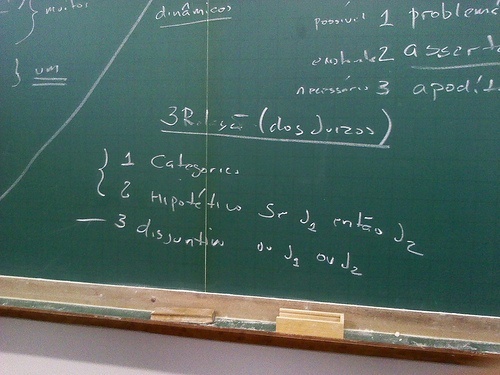 muitos
um
dinâmicos
possível 1 problema
2 assert
necessário 3 apodít
3 Relação (dos Juízos)
1 Categórico
2 Hipotético Se J1 então J2
3 disjuntivo ou J1 ou J2